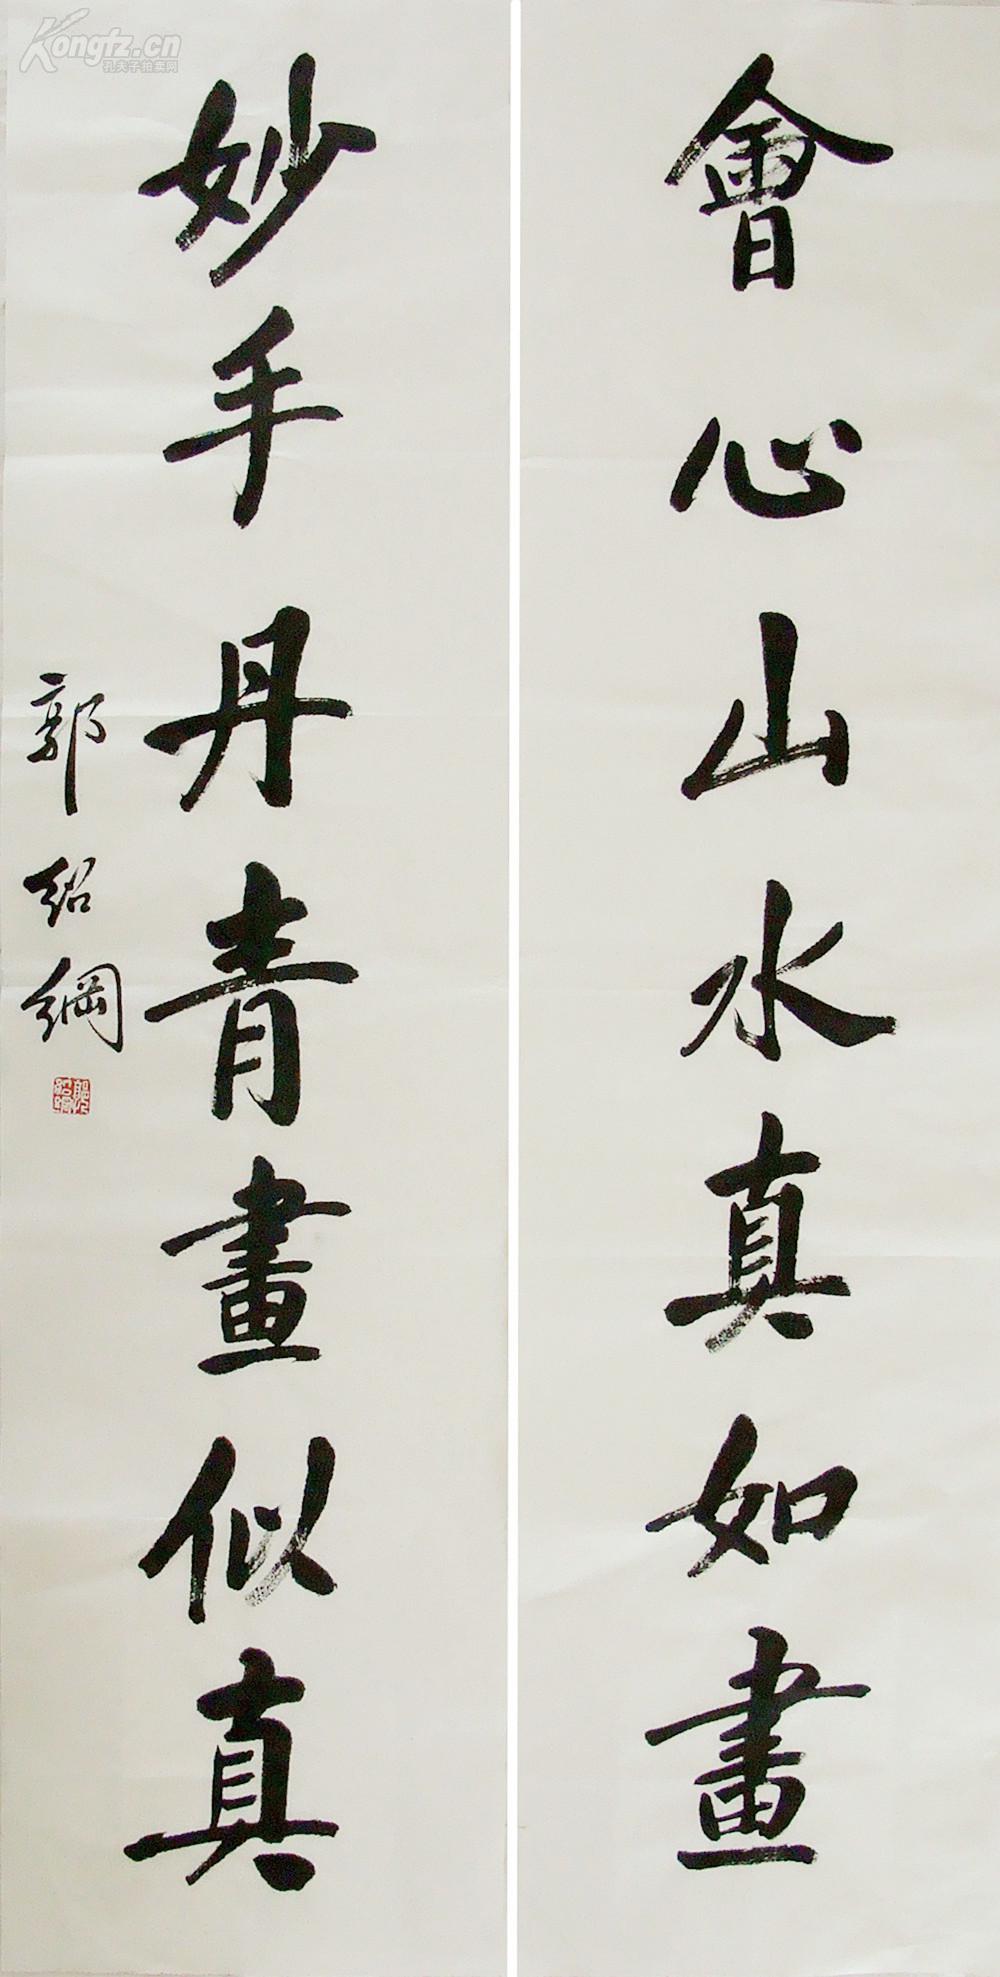 會心山水真如畫
妙手丹青畫似真
郭紹綱
Kongfz.cn
孔夫子拍卖网